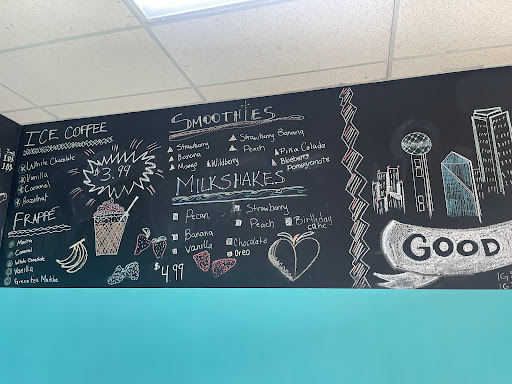 ICE COFFEE
White Chocolate
Vanilla
Caramel
Hazelnut
$3.99
FRAPPÉ
Mocha
Caramel
White Chocolate
Vanilla
Green tea Matcha
SMOOTHIES
Strawberry
Banana
Mango
Wildberry
Strawberry Banana
Peach
Piña Colada
Blueberry
Pomegranate
MILKSHAKES
Pecan
Banana
Vanilla
Strawberry
Peach
Chocolate
Oreo
Birthday
cake
$4.99
GOOD